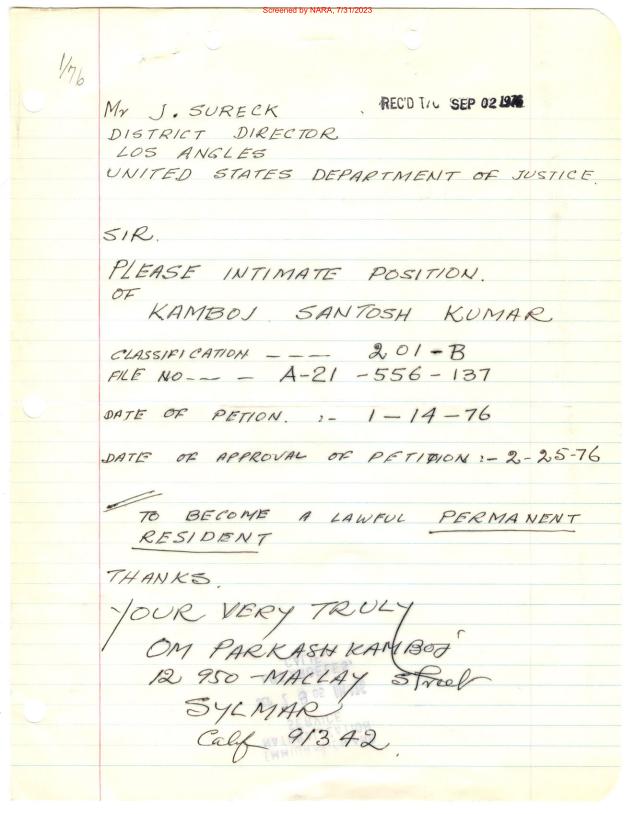 Screened by NARA, 7/31/2023
1/76
REC'D T/C SEP 02 1976
Mr J. SURECK
DISTRICT DIRECTOR
LOS ANGLES
UNITED STATES DEPARTMENT OF JUSTICE.
SIR.
PLEASE INTIMATE POSITION.
OF
KAMBOJ SANTOSH KUMAR
CLASSIFICATION - - - - 201-B
FILE NO - - - A-21-556-137
DATE OF PETION. :- 1-14-76
DATE OF APPROVAL OF PETITION :- 2-25-76
TO BECOME A LAWFUL PERMANENT
RESIDENT
THANKS.
YOUR VERY TRULY
OM PARKASH KAMBOJ
12950-MACLAY Street
SYLMAR
Calif 91342.